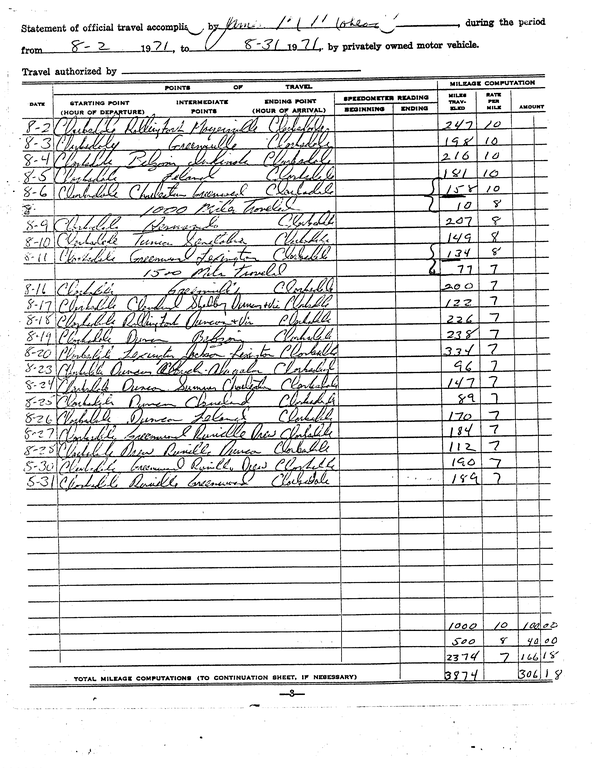 Statement of official travel accomplis by , during the period
from 8-2 1971, to 8-31 1971, by privately owned motor vehicle.
Travel authorized by
POINTS OF TRAVEL MILEAGE COMPUTATION
DATE STARTING POINT (HOUR OF DEPARTURE) INTERMEDIATE POINTS ENDING POINT (HOUR OF ARRIVAL) SPEEDOMETER READING BEGINNING ENDING MILES TRAV-ELED RATE PER MILE AMOUNT
8-2 Clarksdale Rolling Fork Mayersville Clarksdale 247 10
8-3 Clarksdale Greenville Clarksdale 198 10
8-4 Clarksdale Belzoni Indianola Clarksdale 216 10
8-5 Clarksdale Leland Clarksdale 181 10
8-6 Clarksdale Charleston Greenwood Clarksdale 158 10
1000 Miles Traveled 10 8
8-9 Clarksdale Hernando Clarksdale 207 8
8-10 Clarksdale Tunica Senatobia Clarksdale 149 8
8-11 Clarksdale Greenwood Lexington Clarksdale 134 8
1500 Miles Traveled 77 7
8-16 Clarksdale Greenville Clarksdale 200 7
8-17 Clarksdale Cleveland Shelby Duncan Clarksdale 122 7
8-18 Clarksdale Rolling Fork Duncan Clarksdale 226 7
8-19 Clarksdale Duncan Belzoni Clarksdale 238 7
8-20 Clarksdale Lexington Jackson Lexington Clarksdale 334 7
8-23 Clarksdale Duncan Clarksdale 96 7
8-24 Clarksdale Duncan Sumner Charleston Clarksdale 147 7
8-25 Clarksdale Duncan Cleveland Clarksdale 89 7
8-26 Clarksdale Duncan Leland Clarksdale 170 7
8-27 Clarksdale Greenwood Ruleville Drew Clarksdale 184 7
8-28 Clarksdale Drew Ruleville Duncan Clarksdale 112 7
8-30 Clarksdale Greenwood Ruleville Drew Clarksdale 190 7
8-31 Clarksdale Ruleville Greenwood Clarksdale 189 7
1000 10 100 00
500 8 40 00
2374 7 166 18
TOTAL MILEAGE COMPUTATIONS (TO CONTINUATION SHEET, IF NECESSARY) 3874 306 18
—3—